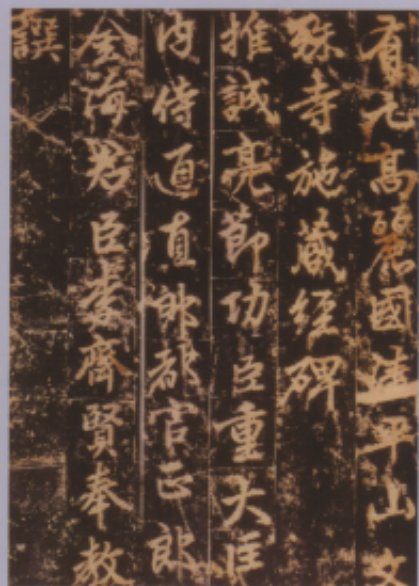 有元高麗國淸平山文
殊寺施藏經碑
推誠亮節功臣重大匡
內侍通直郎都官正郎
金海君臣李齊賢奉敎
撰